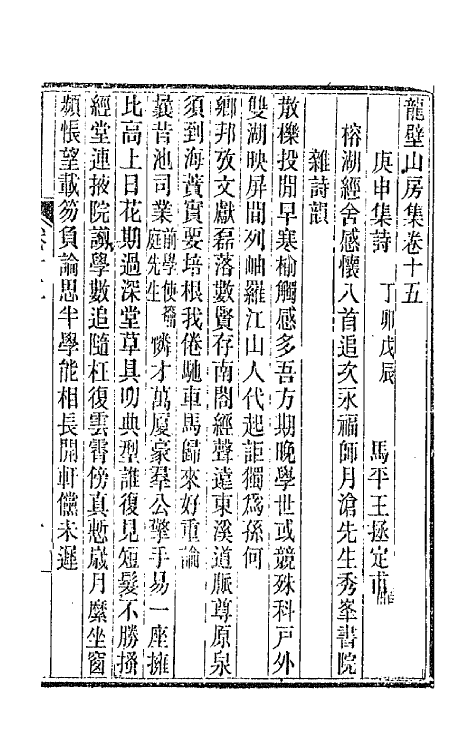 龍壁山房集卷十五
庚申集詩　丁卯戊辰　馬平王拯定甫
榕湖經舍感懷八首追次永福師月滄先生秀峯書院
雜詩韻
散櫟投閒早寒榆觸感多吾方期晚學世或競殊科戶外
雙湖映屏間列岫羅江山人代起詎獨爲孫何
鄉邦攷文獻磊落數賢存南閤經聲遠東溪道脈尊原泉
須到海蕡實要培根我倦馳車馬歸來好重論
曩昔池司業前學使籥庭先生憐才萬廈豪羣公擎手易一座擁
比高上日花期過深堂草具叨典型誰復見短髮不勝搔
經堂連掖院講學數追隨杠復雲霄傍真慙歲月縻坐窗
頻悵望載笏負論思半學能相長開軒儻未遲